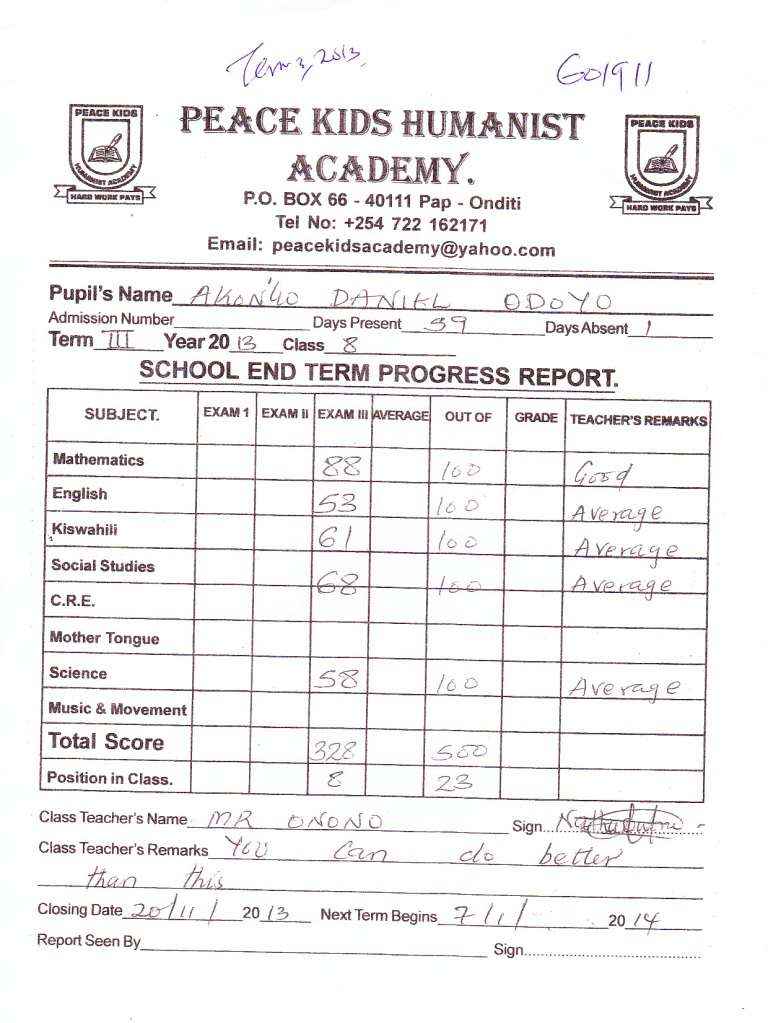 Term 3, 2013.
G01911
PEACE KIDS
HUMANIST ACADEMY
HARD WORK PAYS
PEACE KIDS HUMANIST
ACADEMY.
PEACE KIDS
HUMANIST ACADEMY
HARD WORK PAYS
P.O. BOX 66 - 40111 Pap - Onditi
Tel No: +254 722 162171
Email: peacekidsacademy@yahoo.com
Pupil's Name AKON'GO DANIEL ODOYO
Admission Number Days Present 59 Days Absent 1
Term III Year 2013 Class 8
SCHOOL END TERM PROGRESS REPORT.
SUBJECT. EXAM 1 EXAM II EXAM III AVERAGE OUT OF GRADE TEACHER'S REMARKS
Mathematics 88 100 Good
English 53 100 Average
Kiswahili 61 100 Average
Social Studies 68 100 Average
C.R.E.
Mother Tongue
Science 58 100 Average
Music & Movement
Total Score 328 500
Position in Class. 8 23
Class Teacher's Name MR ONONO Sign
Class Teacher's Remarks You can do better
than this
Closing Date 20/11/ 2013 Next Term Begins 7/1/ 2014
Report Seen By Sign